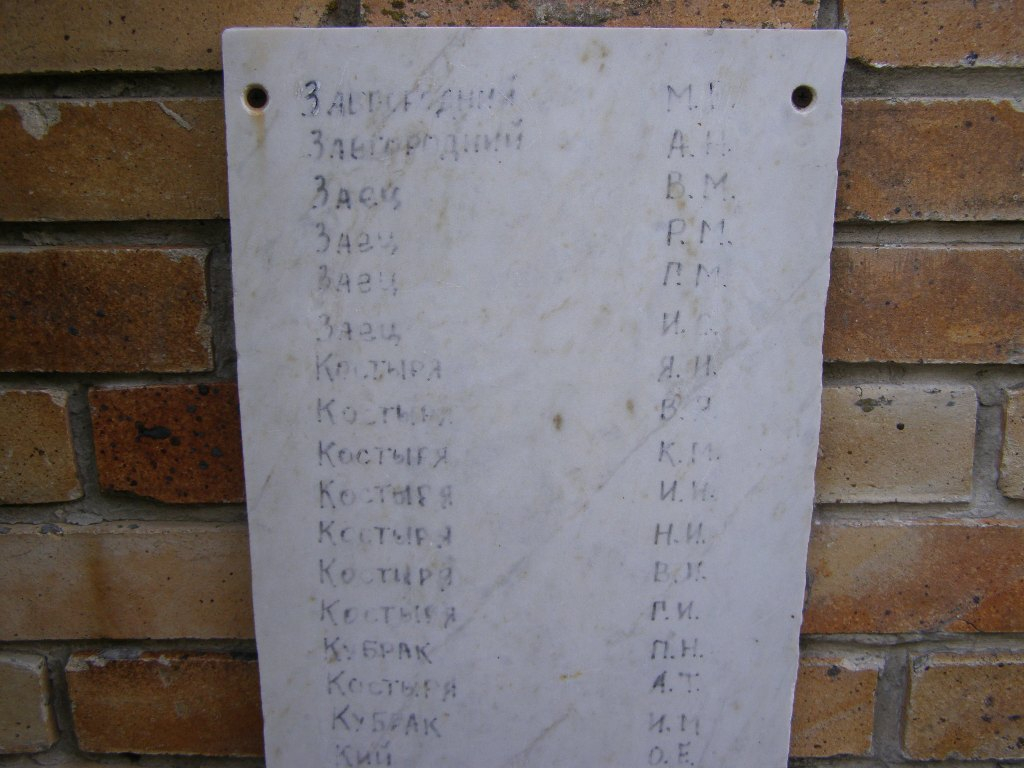 Забгородний М.
Забгородний А.Н.
Заец В.М.
Заец Р.М.
Заец Г.М.
Заец И.
Костыря Я.И.
Костыря В.Я.
Костыря К.М.
Костыря И.И.
Костыря Н.И.
Костыря
Костыря Г.И.
Кубрак П.Н.
Костыря А.Т.
Кубрак И.М
Кий О.Е.